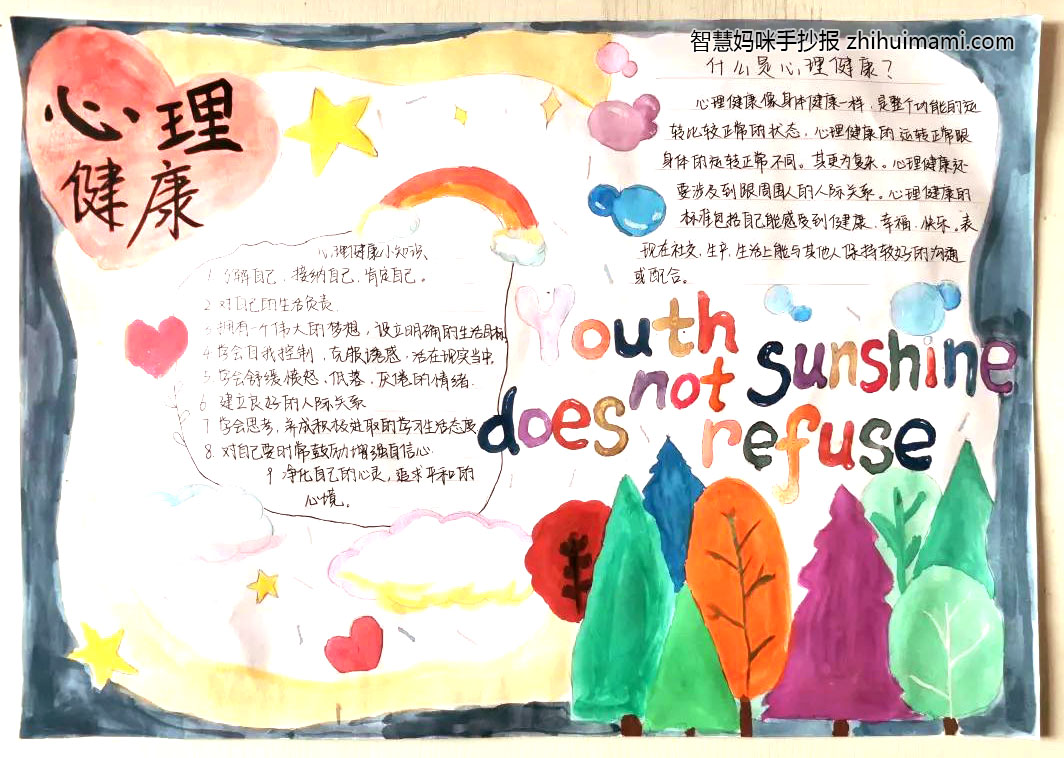 智慧妈咪手抄报 zhihuimami.com
心理
健康
什么是心理健康?
心理健康像身体健康一样,是整个功能的运
转比较正常的状态,心理健康的运转正常跟
身体的运转正常不同。其更为复杂。心理健康还
要涉及到跟周围人的人际关系。心理健康的
标准包括自己能感受到健康、幸福、快乐。表
现在社交,生产,生活上能与其他人保持较好的沟通
或配合。
心理健康小知识
1 了解自己,接纳自己,肯定自己。
2 对自己的生活负责
3 拥有一个伟大的梦想,设立明确的生活目标
4 学会自我控制,克服诱惑,活在现实当中
5 学会舒缓愤怒,低落,厌倦的情绪.
6 建立良好的人际关系
7 学会思考,养成积极进取的学习生活态度
8. 对自己要时常鼓励增强自信心.
9 净化自己的心灵,追求平和的
心境。
Youth
not sunshine
does refuse